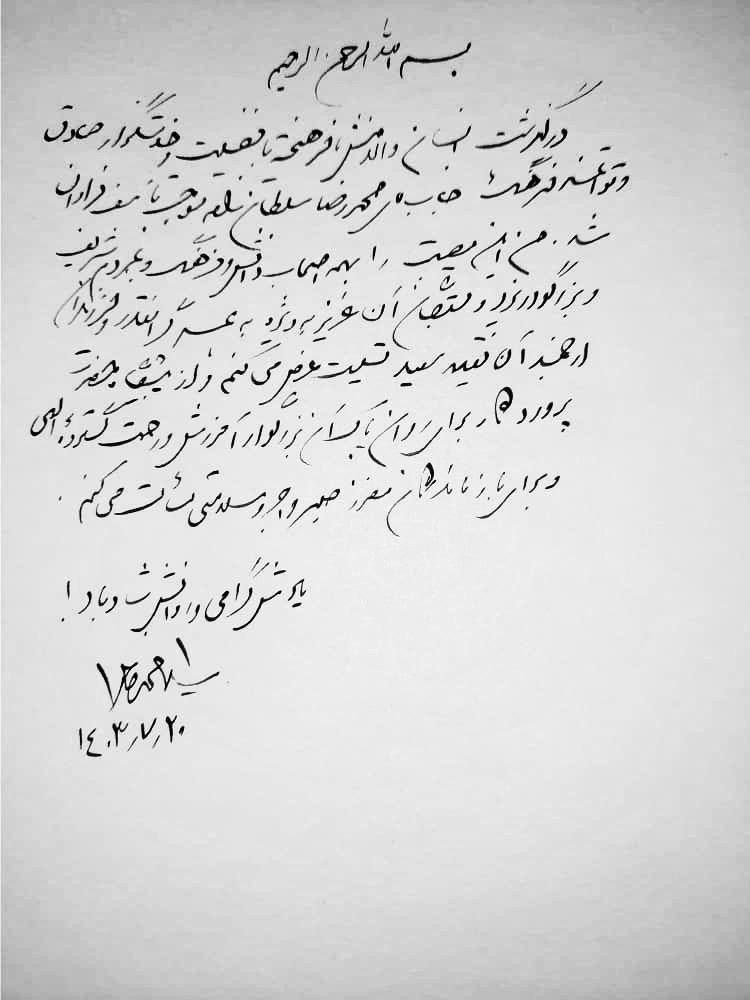 بسم الله الرحمن الرحیم
درگذشت انسان والامنش، فرهیختهٔ بافضیلت و خدمتگزار صادق
و توانمند فرهنگ جناب آقای محمدرضا سلطان زاده موجب تأسف فراوان
شد. من این مصیبت را بهمه اصحاب دانش و فرهنگ و به مردم شریف
و بزرگوار یزد و متعلقان آن عزیز به ویژه به همسر گرانقدر و فرزندان
ارجمند آن فقید سعید تسلیت عرض می کنم و از پیشگاه حضرت
پروردگار برای روان پاک آن بزرگوار آمرزش و رحمت گستردهٔ الهی
و برای بازماندگان معزز صبر و اجر و سلامتی مسألت می کنم.
یادش گرامی و روانش شاد باد!
سید محمد خاتمی
۱۴۰۳/۷/۲۰